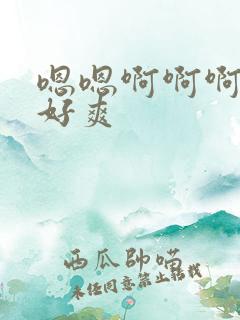 嗯嗯啊啊啊
好爽
西瓜帥喵
未经同意禁止转载